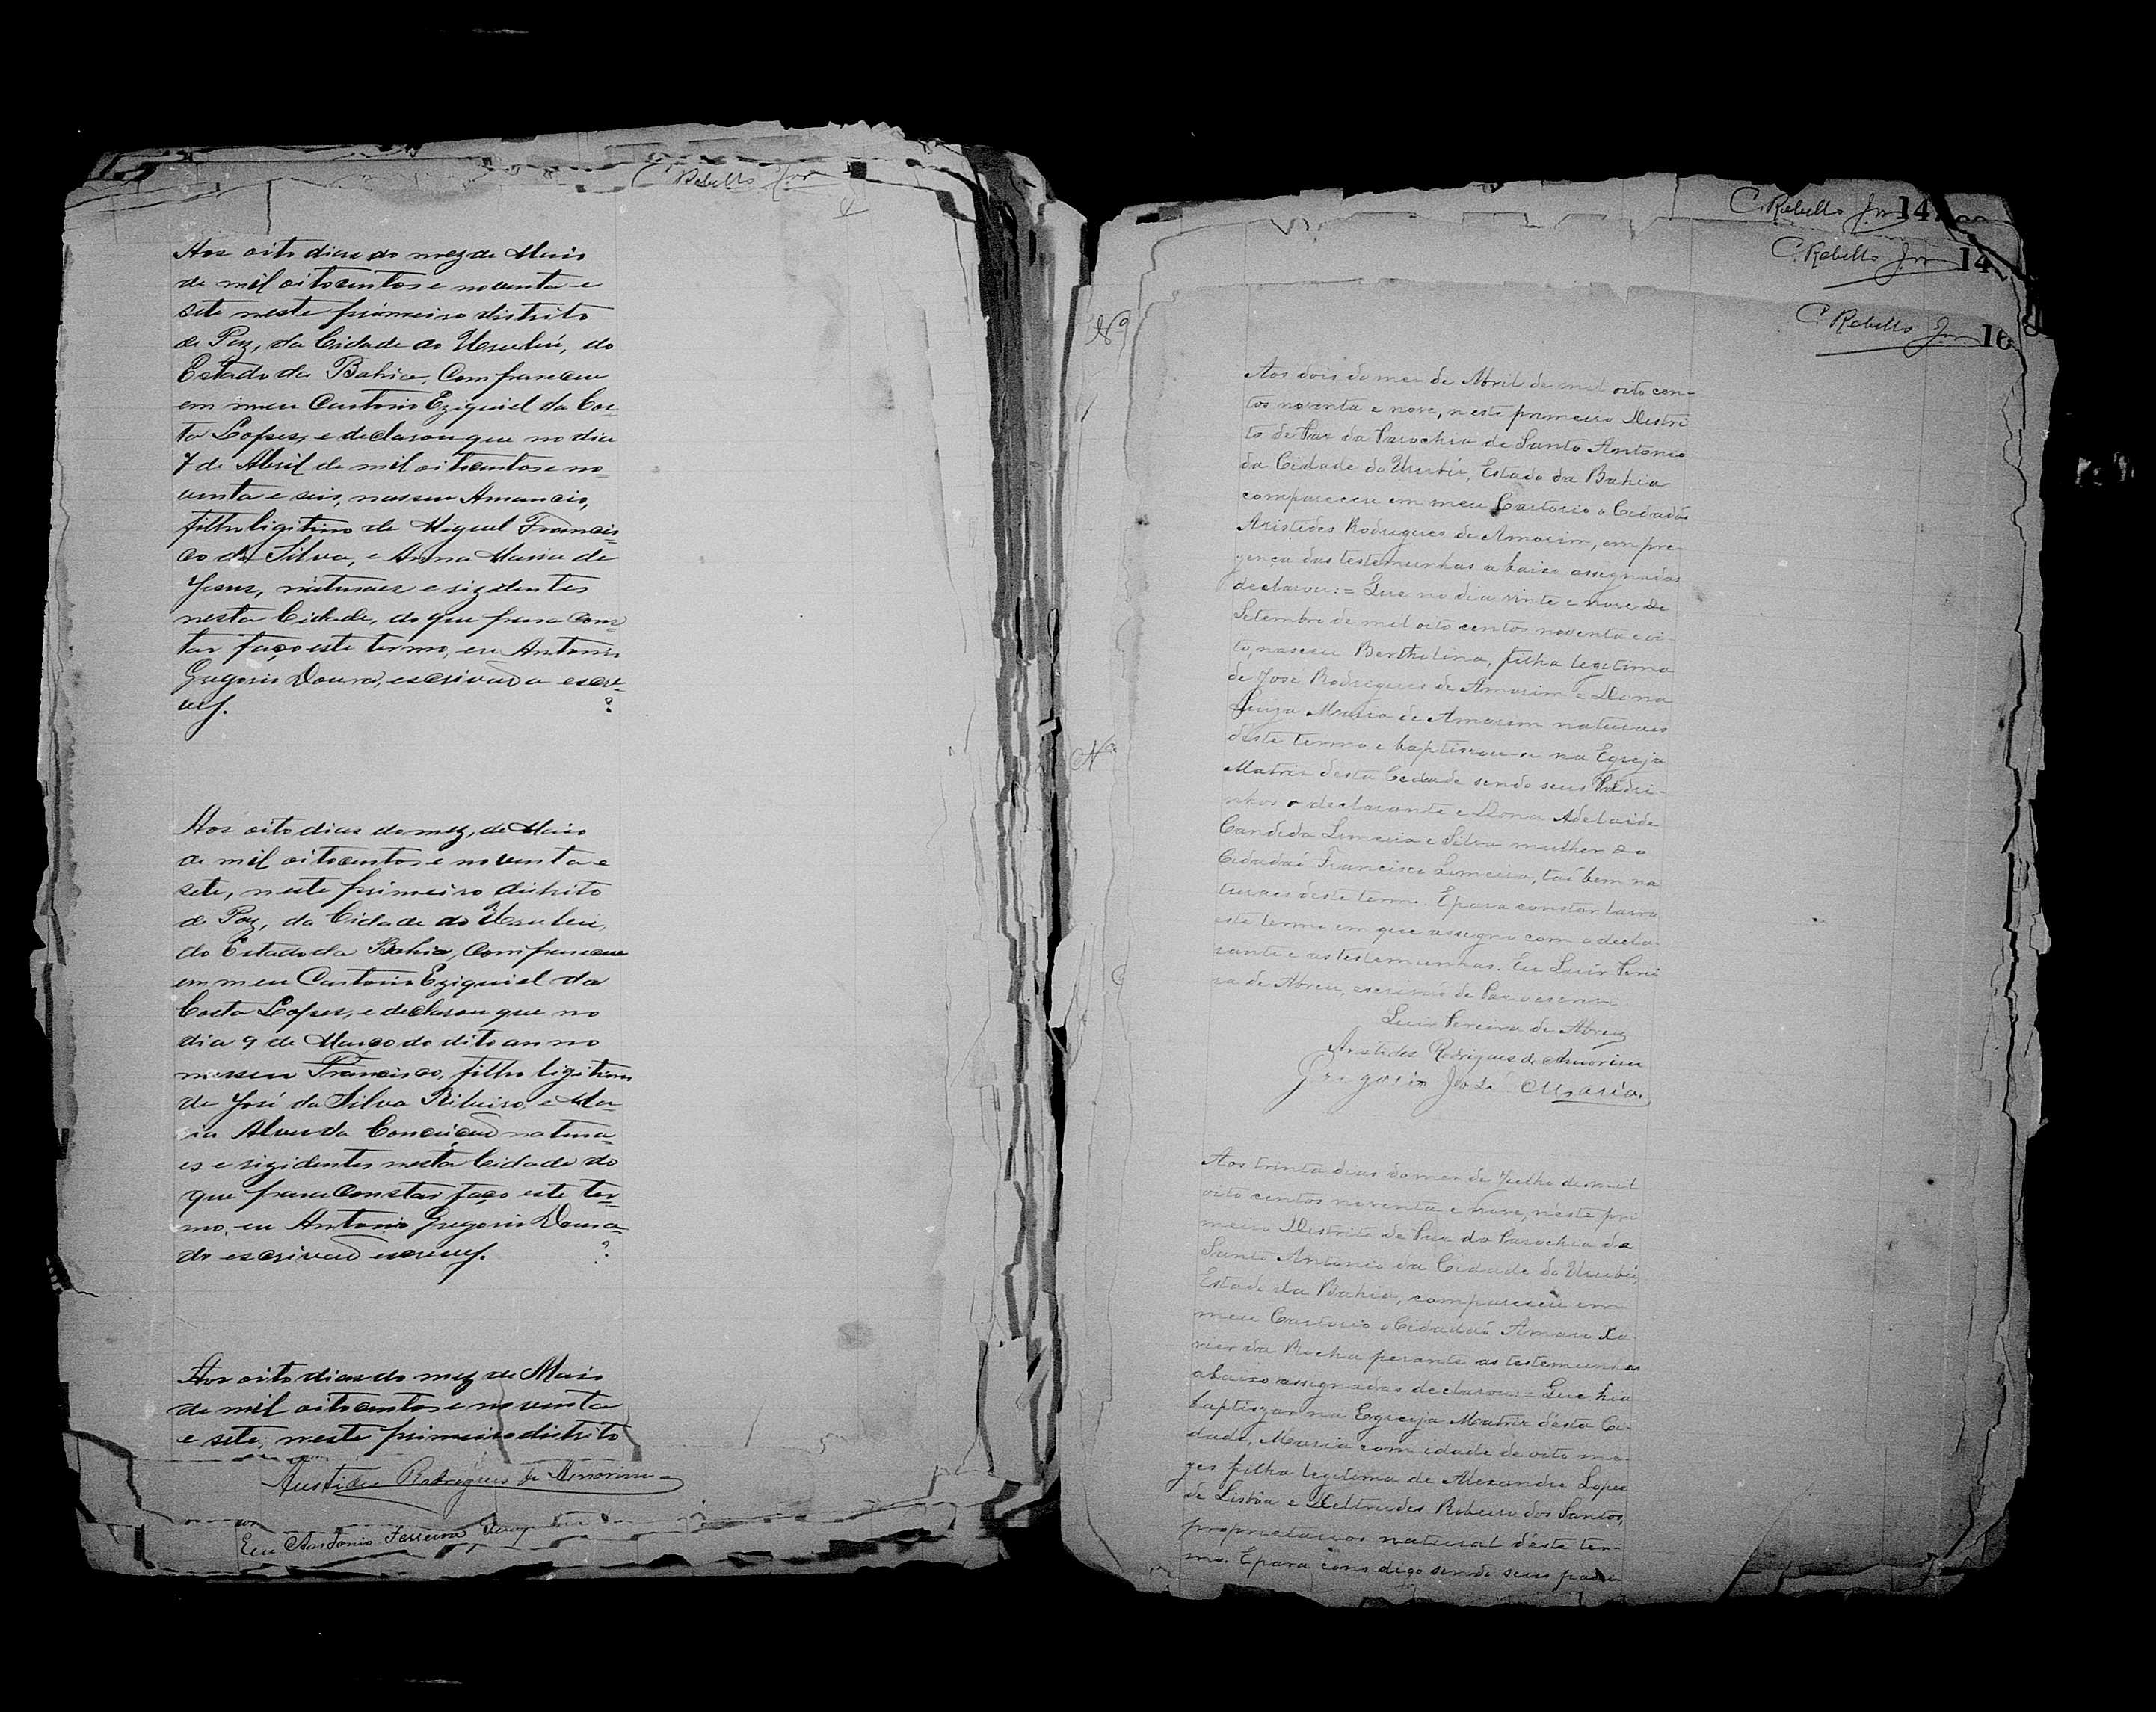 C Rebello Jnr
Aos oito dias do mez de Maio
de mil oitocentos e noventa e
sete neste primeiro distrito
de Paz, da Cidade do Urubú, do
Estado da Bahia, Compareceu
em meu Cartorio Eziquiel da Cos
ta Lopes, e declarou que no dia
7 de Abril de mil oitocentos e no=
venta e seis, nasceu Amancio,
filho ligitimo de Miguel Francis=
co da Silva, e Anna Maria de
Jesus, naturaes e rizidentes
nesta Cidade, do que para Cons=
tar faço este termo, eu Antonio
Gregorio Dourado, escrivaõ a escre=
vy.
Aos oito dias do mez, de Maio
de mil oitocentos e noventa e
sete, neste primeiro distrito
de Paz, da Cidade do Urubú,
do Estado da Bahia, Compareceu
em meu Cartorio Eziquiel da
Costa Lopes, e declarou que no
dia 9 de Março do dito anno
nasceu Francisco, filho ligitimo
de José da Silva Ribeiro, e Ma=
ria Alves da Conceiçaõ natura=
es e rizidentes nesta Cidade do
que para Constar faço este ter=
mo, eu Antonio Gregorio Doura=
do escrivaõ escrevy.
Aos oito dias do mez de Maio
de mil oitocentos e noventa
e sete, neste primeiro distrito
Aristides Rodrigues de Amorim
Eu Antonio Ferreira
C. Rebello Jnr 14
C. Rebello Jnr 14
C. Rebello Jnr 16
Nº
Aos dois do mez de Abril de mil oito cen-
tos noventa e nove, neste primeiro Destri
to de Paz da Parochia de Santo Antonio
da Cidade do Urubú, Estado da Bahia
compareceu em meu Cartorio o Cidadão
Aristides Rodrigues de Amorim, em pre-
zença das testemunhas a baixo assegnadas
declarou:= Que no dia vinte e nove de
Setembro de mil oito centos noventa e oi-
to, nasceu Berthelina, filha legitima
de José Rodrigues de Amorim e Dona
Luiza Maria de Amorim naturaes
déste termo e baptisou-se na Egreja
Matriz desta Cedade sendo seus Padri-
nhos o declarante e Dona Adelaide
Candida Limeira e Silva mulher do
Cidadaõ Francisco Limeira, taõ bem na
turaes deste termo. E para constar lavro
este termo em que assegno com o decla-
rante e as testemunhas. Eu Luiz Perei
ra de Abreu, escrivaõ de Paz o escrevi.
Luiz Pereira de Abreu
Aristides Rodrigues de Amorim
Gregorio José Maria
Nº
Aos trinta dias do mez de Julho de mil
oito centos noventa e nove, néste pri
meiro Destrito de Paz da Parochia de
Santo Antonio da Cidade do Urubú,
Estado da Bahia, compareceu em
meu Cartorio o Cidadaõ Amaro Xa-
vier da Rocha perante as testemunhas
abaixo assegnadas declarou:= Que hia
baptizar na Egreja Matriz désta Ci-
dade, Maria com idade de oito me-
zes filha legitima de Alexandre Lopes
de Lisbôa e Deltrudes Ribeiro dos Santos,
proprietarios natural déste ter-
mo. E para cons digo sendo seus padri-